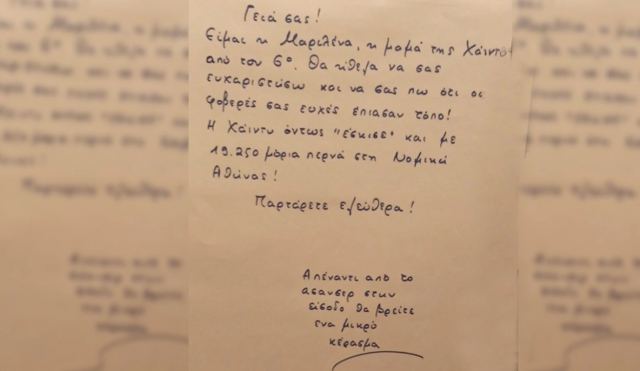 Γειά σας!
Είμαι η Μαριλένα, η μαμά της Χάιντυ
από τον 6º. Θα ήθελα να σας
ευχαριστήσω και να σας πω ότι οι
φοβερές σας ευχές έπιασαν τόπο!
Η Χάιντυ όντως "έσκισε" και με
19.250 μόρια περνά στη Νομική
Αθήνας!
Παρτάρετε ελεύθερα!
Απέναντι από το
ασανσέρ στην
είσοδο θα βρείτε
ένα μικρό
κέρασμα